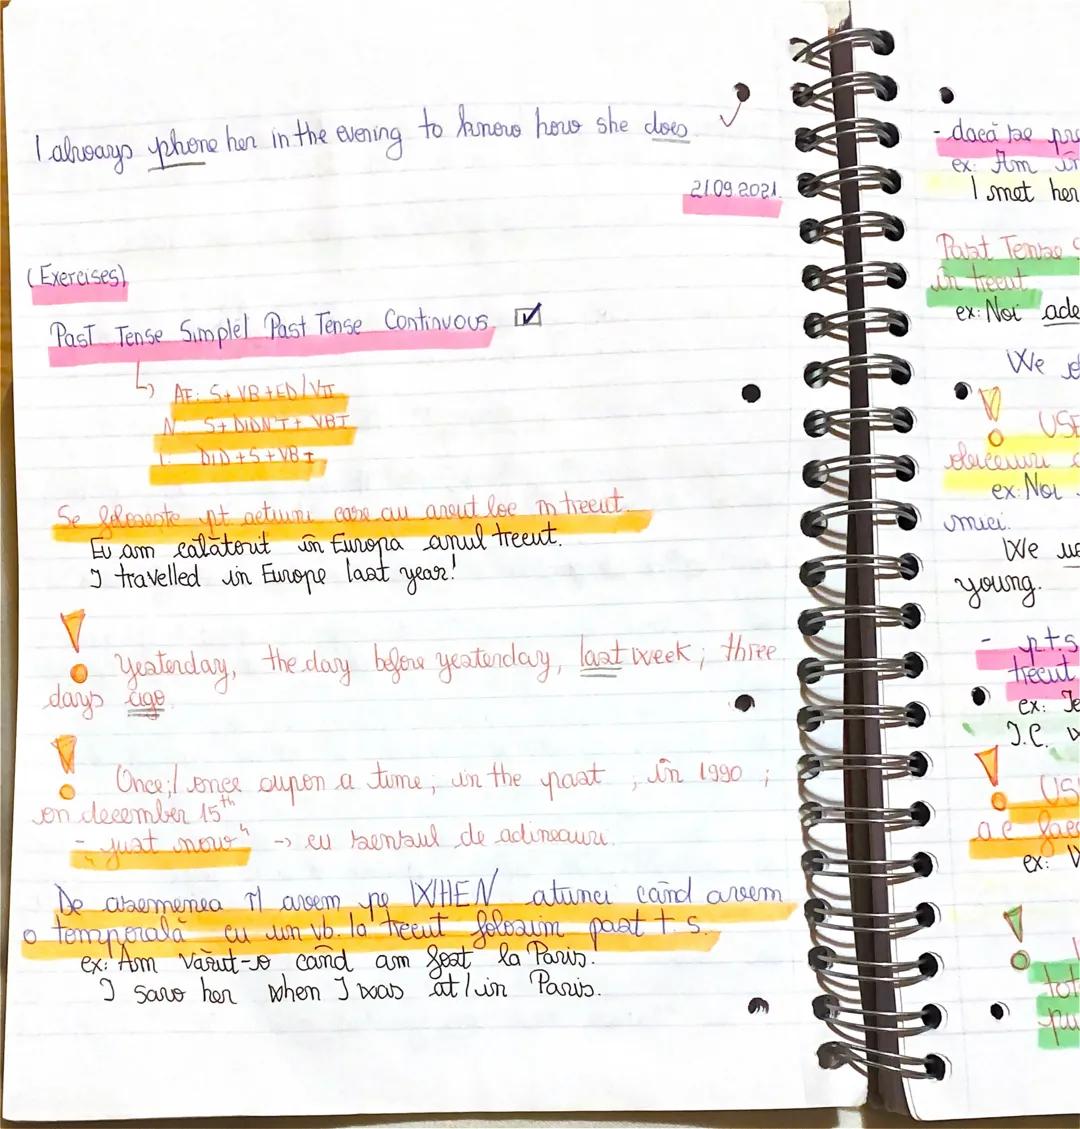 I always phone her in the evening to know how she does.
21.09.2021.
(Exercises)
Past Tense Simple/ Past Tense Continuous
AF: S+VB+ED/VII
N S+DIDN'T+VBI
I: DID+S+VBI
Se folosește pt. acțiuni care au avut loc în trecut.
Eu am călătorit în Europa anul trecut.
I travelled in Europe last year!
Yesterday, the day before yesterday, last week; three
days ago
Once;/ once oupon a time; in the past ; in 1990 ;
on december 15th
- "just now" -> cu sensul de adineauri.
De asemenea îl avem pe WHEN atunci când avem
o temporală cu un vb. la trecut folosim past t. s.
ex: Am văzut-o când am fost la Paris.
I saw her when I was at/in Paris.
- dacă se
ex: Am
I met her
Past Tense
în trecut
ex: Noi
We
obiceiuri
ex: Noi
mici.
We
young.
- pt.
trecut
ex:
I.C.
ex: